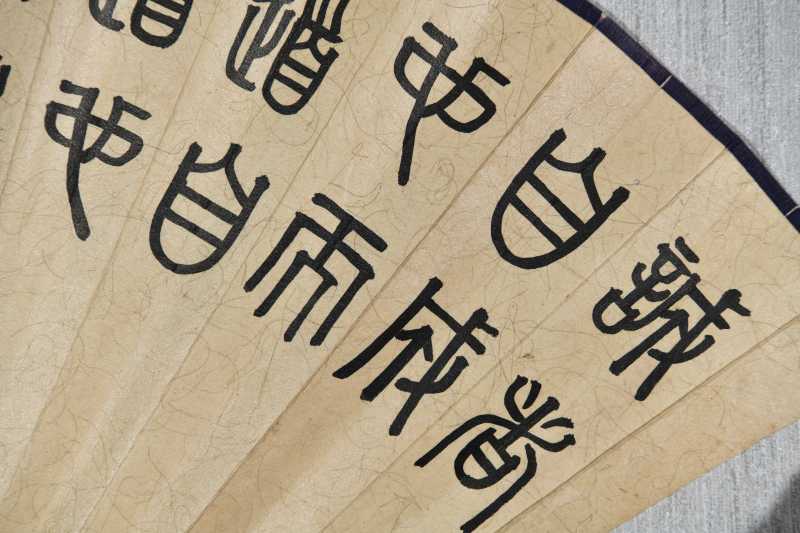 誠者
自成
也而
道自
道也